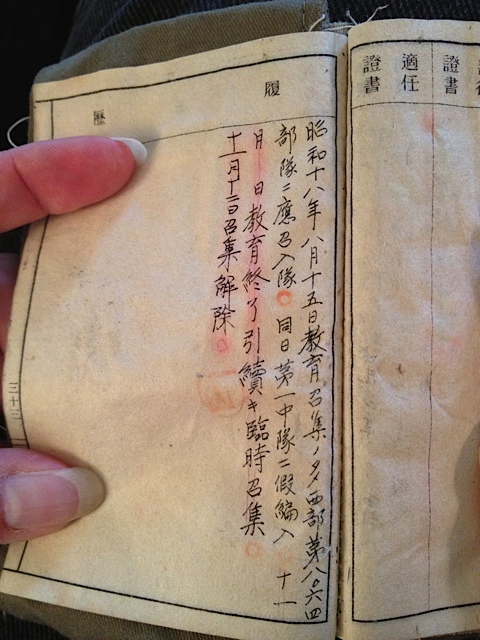 證書
適任
證書
履
昭和十八年八月十五日教育召集ノタメ西部第八〇六四
部隊ニ應召入隊。同日第一中隊ニ假編入 十一
月 日教育終了引續キ臨時召集。
十一月十二日召集解除。
歷
三十三